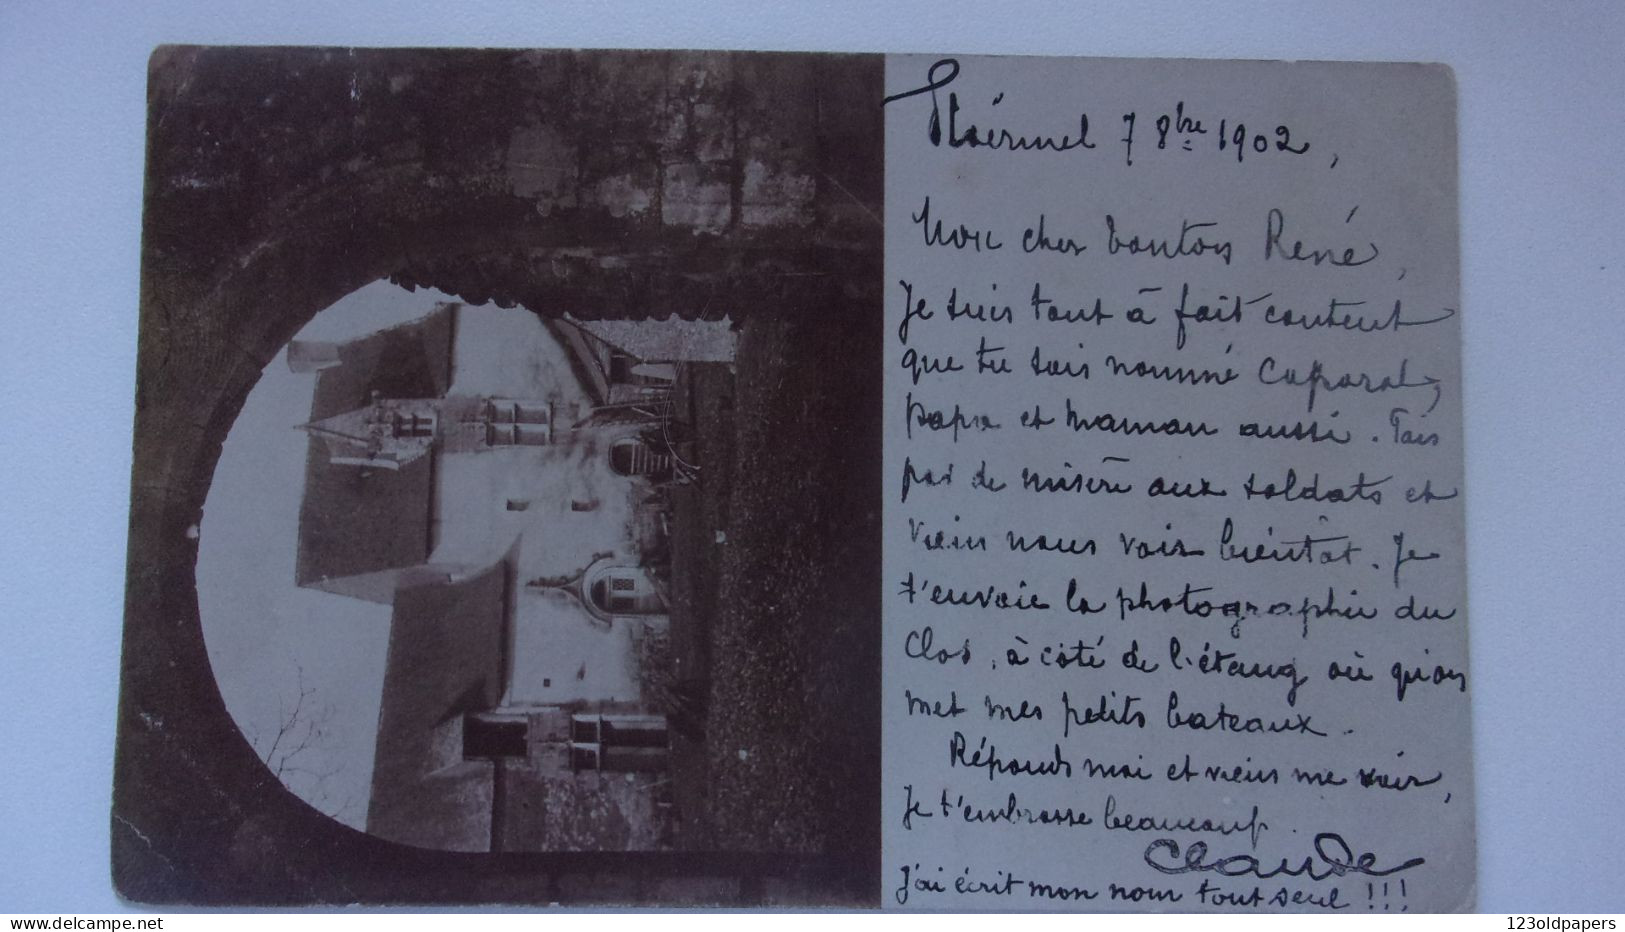 Ploërmel 7 8bre 1902,
Mon cher tonton René,
Je suis tout à fait content
que tu sois nommé Caporal,
papa et maman aussi. Fais
pas de misère aux soldats et
viens nous voir bientôt. Je
t'envoie la photographie du
Clos, à côté de l'étang où qu'on
met mes petits bateaux.
Réponds moi et viens me voir,
Je t'embrasse beaucoup.
Claude
J'ai écrit mon nom tout seul !!!
123oldpapers